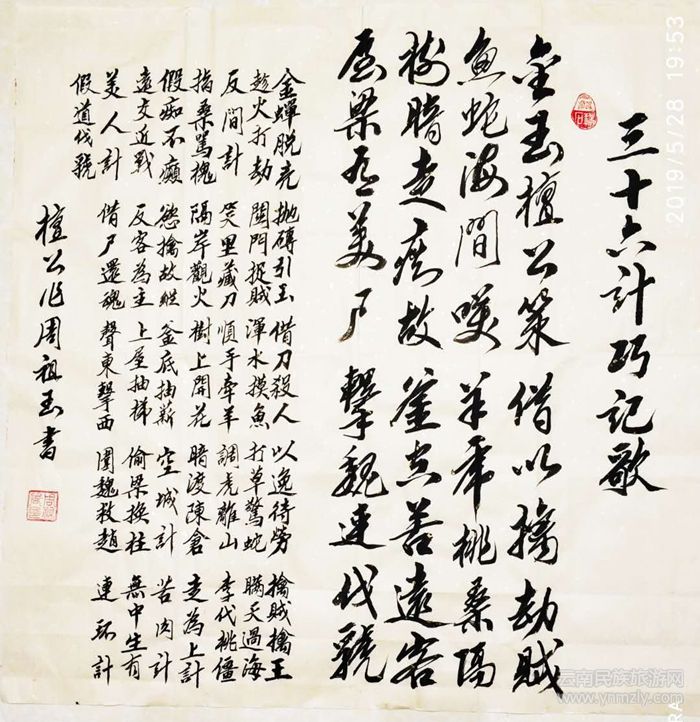 三十六计巧記歌
金玉檀公策借以擒劫賊
魚蛇海間笑羊虎桃桑隔
樹暗走痴故釜空苦遠客
屋梁有美尸擊魏連伐虢
金蟬脱壳 抛磚引玉 借刀殺人 以逸待勞 擒賊擒王
趁火打劫 關門捉賊 渾水摸魚 打草驚蛇 瞞天過海
反間計 笑里藏刀 順手牽羊 調虎離山 李代桃僵
指桑罵槐 隔岸觀火 樹上開花 暗渡陳倉 走為上計
假痴不癲 慾擒故縱 釜底抽斯 空城計 苦肉計
遠交近戰 反客為主 上屋抽梯 偷梁換柱 無中生有
美人計 借尸還魂 聲東擊西 圍魏救趙 連環計
假道伐虢
檀公作周祖玉書
2019/5/28 19:53
云南民族旅游网
www.ynmzly.com